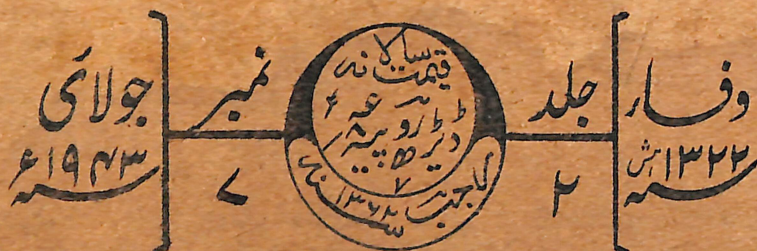 وفا
۱۳۲۲ ہش
جلد
۲
قیمت سالانہ
ڈیڑھ روپیہ
۱۳۶۲
نمبر
۷
جولائی
۱۹۴۳ء